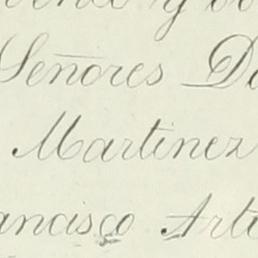 y
Señores D
Martinez
ancisco Art